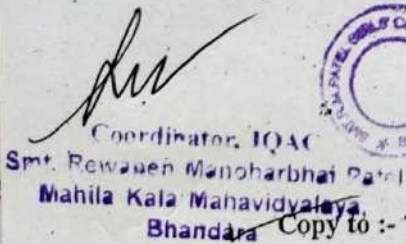 Coordinator, IQAC
Smt. Rewaben Manoharbhai Patel
Mahila Kala Mahavidyalaya,
Bhandara
Copy to :-